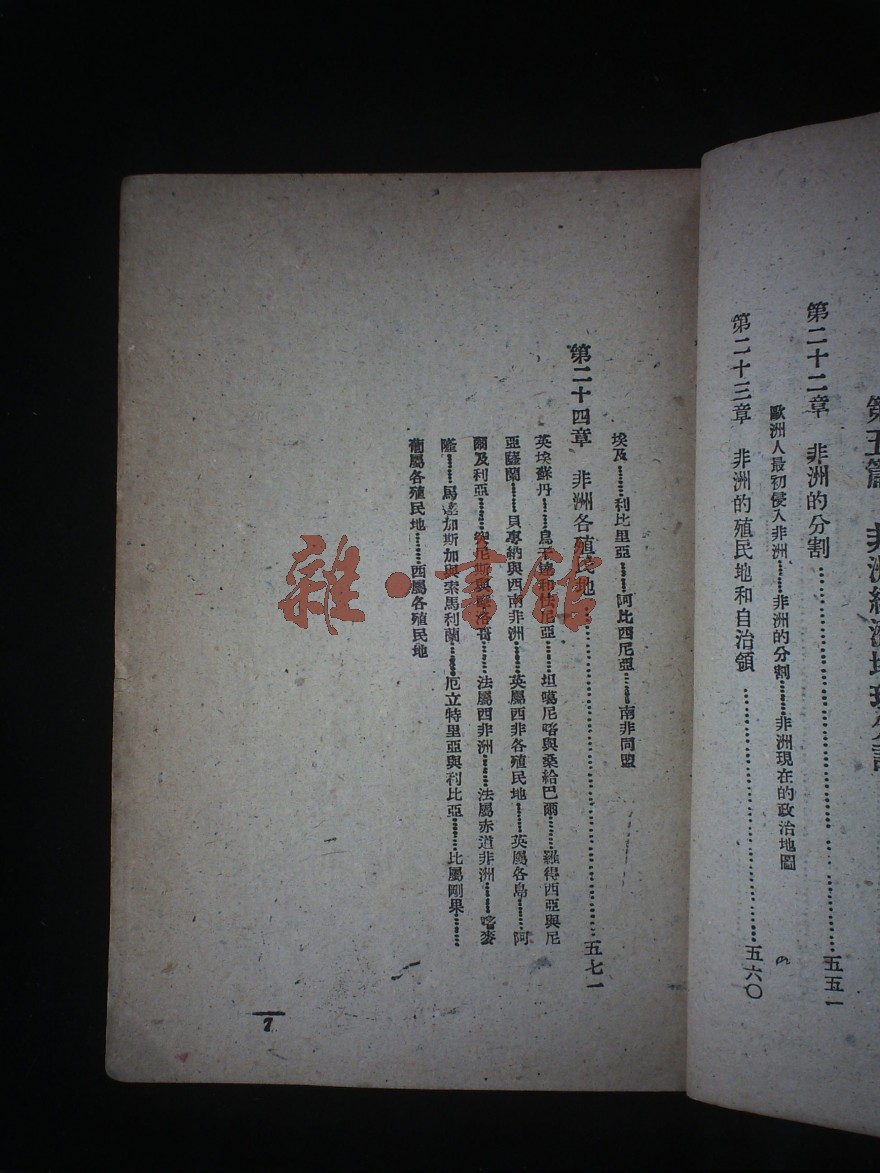 第五篇 非洲經濟地理分論
第二十二章 非洲的分割……五五一
歐洲人最初侵入非洲……非洲的分割……非洲現在的政治地圖
第二十三章 非洲的殖民地和自治領……五六〇
埃及……利比里亞……阿比西尼亞……南非同盟
第二十四章 非洲各殖民地……五七一
英埃蘇丹……烏干達和法尼亞……坦噶尼喀與桑給巴爾……羅得西亞與尼
亞薩蘭……貝專納與西南非洲……英屬西非各殖民地……英屬各島……阿
爾及利亞……突尼斯與摩洛哥……法屬西非洲……法屬赤道非洲……喀麥
隆……馬達加斯加與索馬利蘭……厄立特里亞與利比亞……比屬剛果……
葡屬各殖民地……西屬各殖民地
7
雜·書館